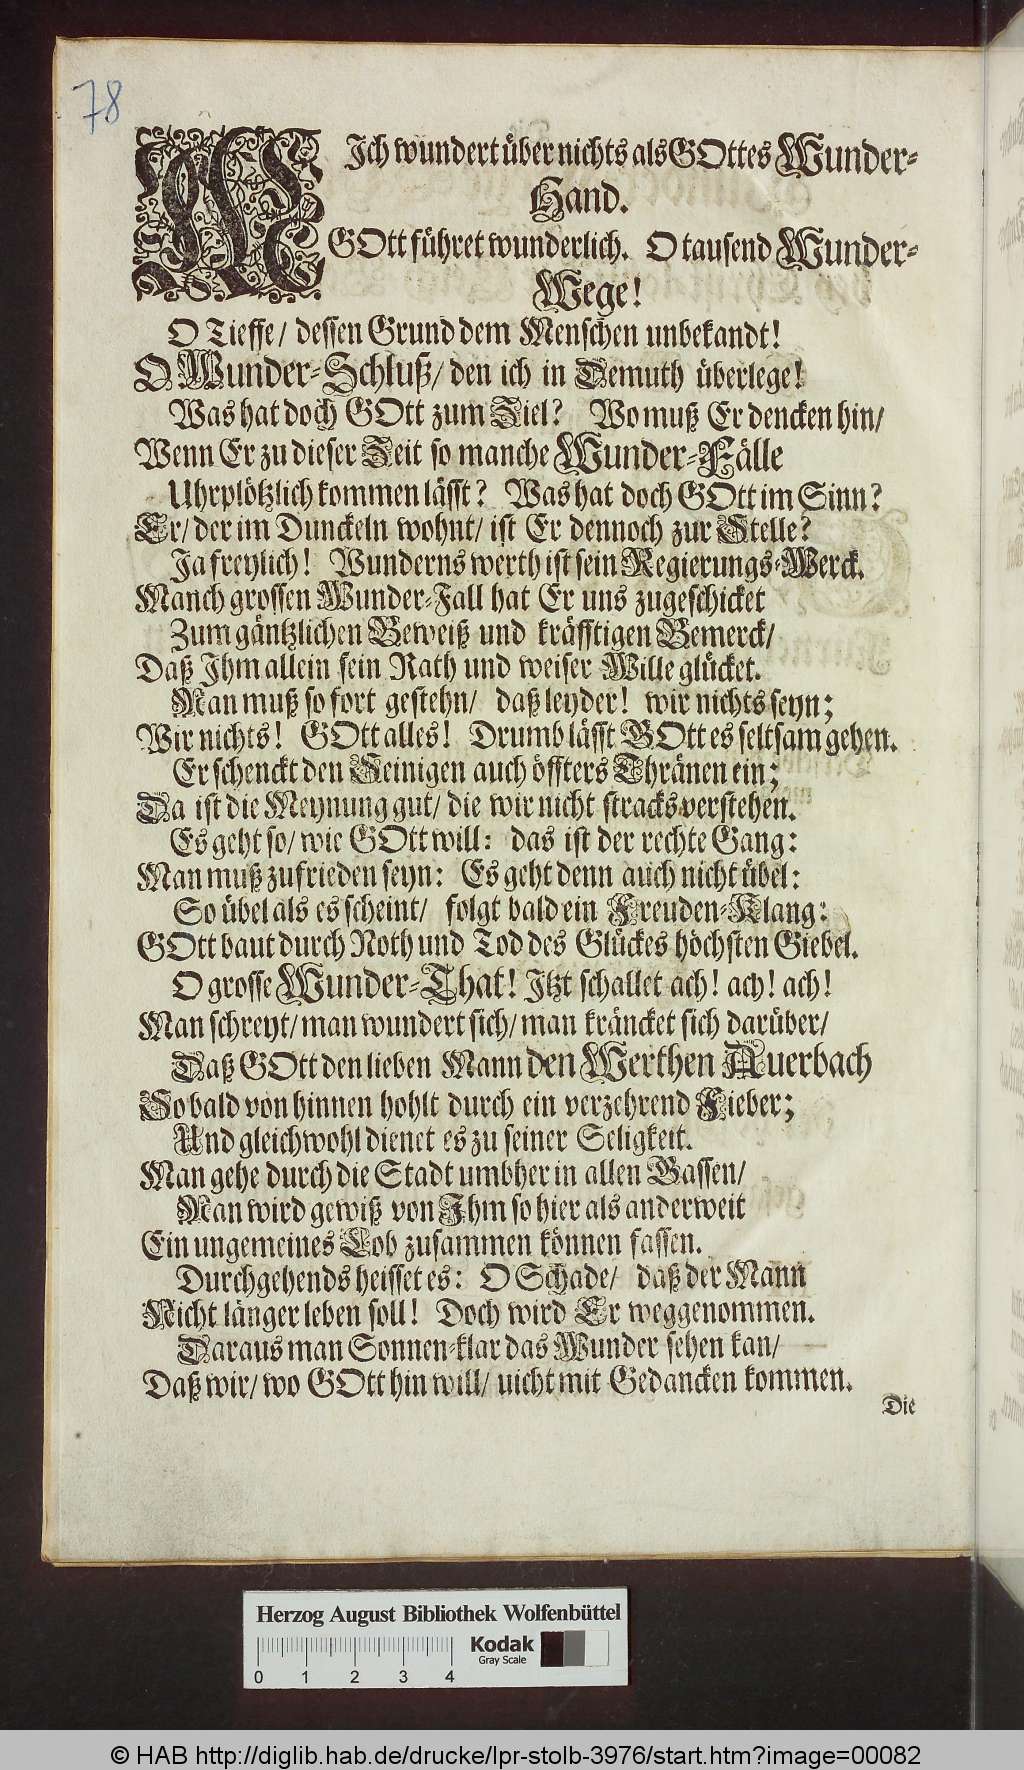 78
MIch wundert über nichts als GOttes Wunder-
Hand.
GOtt führet wunderlich. O tausend Wunder-
Wege!
O Tieffe/ dessen Grund dem Menschen unbekandt!
O Wunder-Schluß/ den ich in Demuth überlege!
Was hat doch GOtt zum Ziel? Wo muß Er dencken hin/
Wenn Er zu dieser Zeit so manche Wunder-Fälle
Uhrplötzlich kommen lässt? Was hat doch GOtt im Sinn?
Er/ der im Dunckeln wohnt/ ist Er dennoch zur Stelle?
Ja freylich! Wunderns werth ist sein Regierungs-Werck.
Manch grossen Wunder-Fall hat Er uns zugeschicket
Zum gäntzlichen Beweiß und kräfftigen Bemerck/
Daß Ihm allein sein Rath und weiser Wille glücket.
Man muß so fort gestehn/ daß leyder! wir nichts seyn;
Wir nichts! GOtt alles! Drumb lässt GOtt es seltsam gehen.
Er schenckt den Seinigen auch öffters Thränen ein;
Da ist die Meynung gut/ die wir nicht stracks verstehen.
Es geht so/ wie GOtt will: das ist der rechte Gang:
Man muß zufrieden seyn: Es geht denn auch nicht übel:
So übel als es scheint/ folgt bald ein Freuden-Klang:
GOtt baut durch Noth und Tod des Glückes höchsten Giebel.
O grosse Wunder-That! Itzt schallet ach! ach! ach!
Man schreyt/ man wundert sich/ man kräncket sich darüber/
Daß GOtt den lieben Mann den Werthen Auerbach
So bald von hinnen hohlt durch ein verzehrend Fieber;
Und gleichwohl dienet es zu seiner Seligkeit.
Man gehe durch die Stadt umbher in allen Gassen/
Man wird gewiß von Ihm so hier als anderweit
Ein ungemeines Lob zusammen können fassen.
Durchgehends heisset es: O Schade/ daß der Mann
Nicht länger leben soll! Doch wird Er weggenommen.
Daraus man Sonnen-klar das Wunder sehen kan/
Daß wir/ wo GOtt hin will/ nicht mit Gedancken kommen.
Die
Herzog August Bibliothek Wolfenbüttel
0 1 2 3 4
Kodak
Gray Scale
© HAB http://diglib.hab.de/drucke/lpr-stolb-3976/start.htm?image=00082